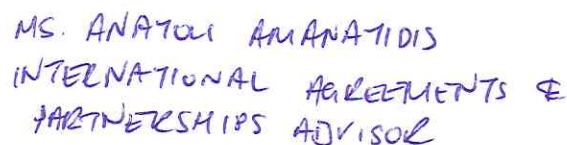 MS. ANATOLI AMANATIDIS
INTERNATIONAL AGREEMENTS &
PARTNERSHIPS ADVISOR